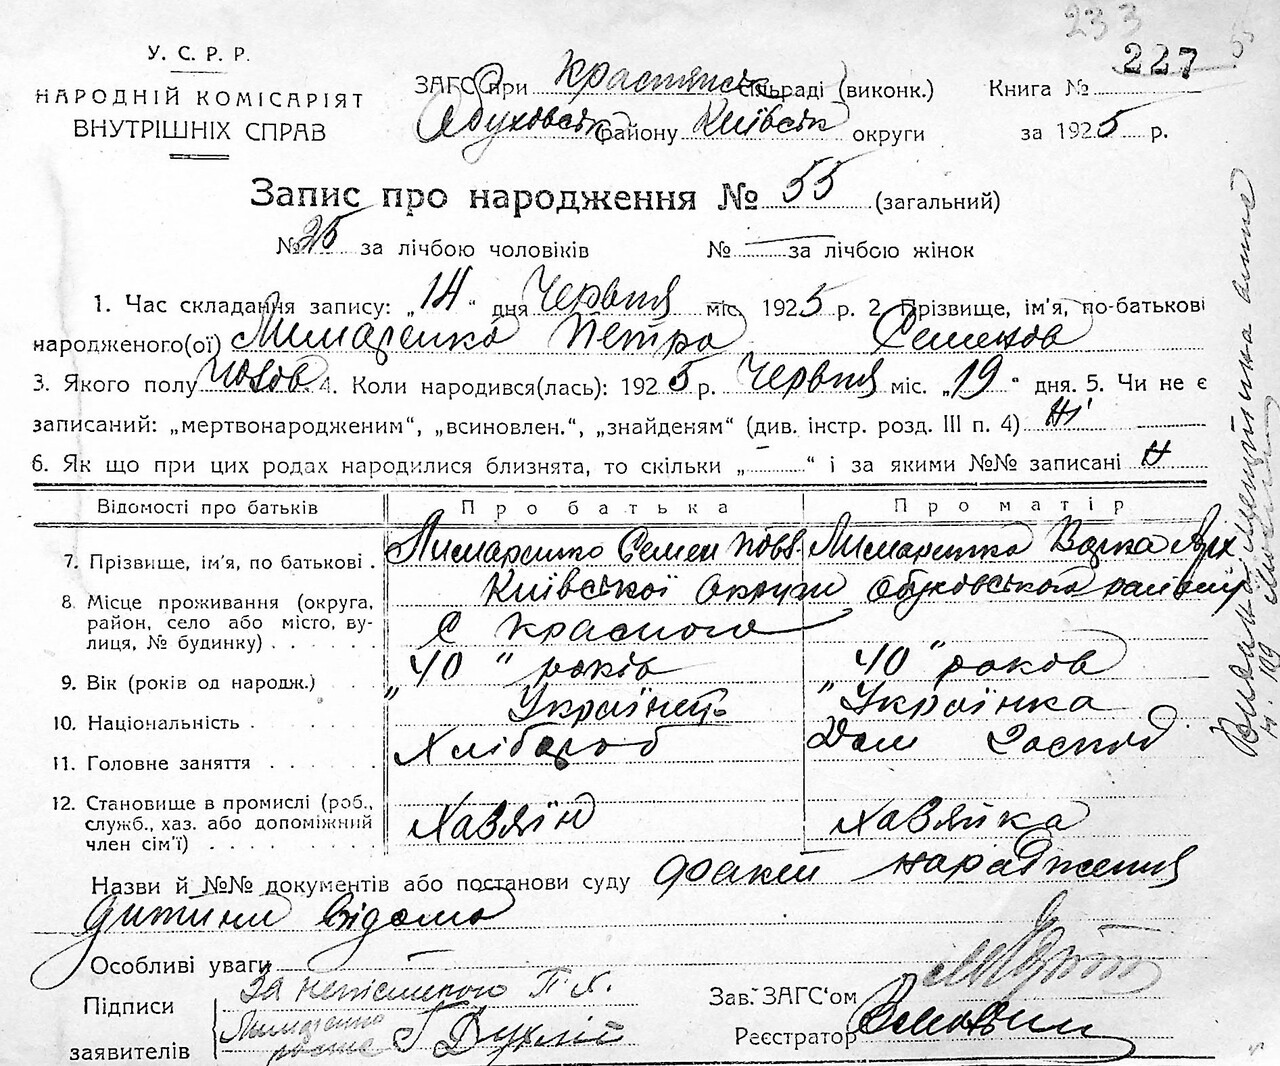 233
227
У. С. Р. Р.
НАРОДНІЙ КОМІСАРІЯТ
ВНУТРІШНІХ СПРАВ
ЗАГС при сільраді (виконк.) Книга №
Обуховськ району Київськ округи за 1925 р.
Запис про народження № 55 (загальний)
№ 25 за лічбою чоловіків № — за лічбою жінок
1. Час складання запису: „14" дня Червня міс. 1925 р. 2. Прізвище, ім'я, по-батькові
народженого(ої) Лимаренко Петро Семенов
3. Якого полу чолов 4. Коли народився(лась): 1925 р. Червня міс. „19" дня. 5. Чи не є
записаний: „мертвонародженим", „всиновлен.", „знайденям" (див. інстр. розд. III п. 4) Ні
6. Як що при цих родах народилися близнята, то скільки „ " і за якими №№ записані Н
Відомості про батьків Про батька Про матір
7. Прізвище, ім'я, по батькові . Лимаренко Семен Лимаренко
8. Місце проживання (округа, район, село або місто, вулиця, № будинку) . . . . . . Київської округи Обуховського району
с Красного
9. Вік (років од народж.) . . „40" років „40" роков
10. Національність . . . . . Українець Українка
11. Головне заняття . . . . . Хлібороб Дом Господ
12. Становище в промислі (роб., служб., хаз. або допоміжний член сім'ї) . . . . . . . Хазяїн Хазяйка
Назви й №№ документів або постанови суду факт народження
дитини відомо
Особливі уваги
Підписи
заявителів
За неписьменого П. Х.
Лимаренко
Зав. ЗАГС'ом
Реєстратор